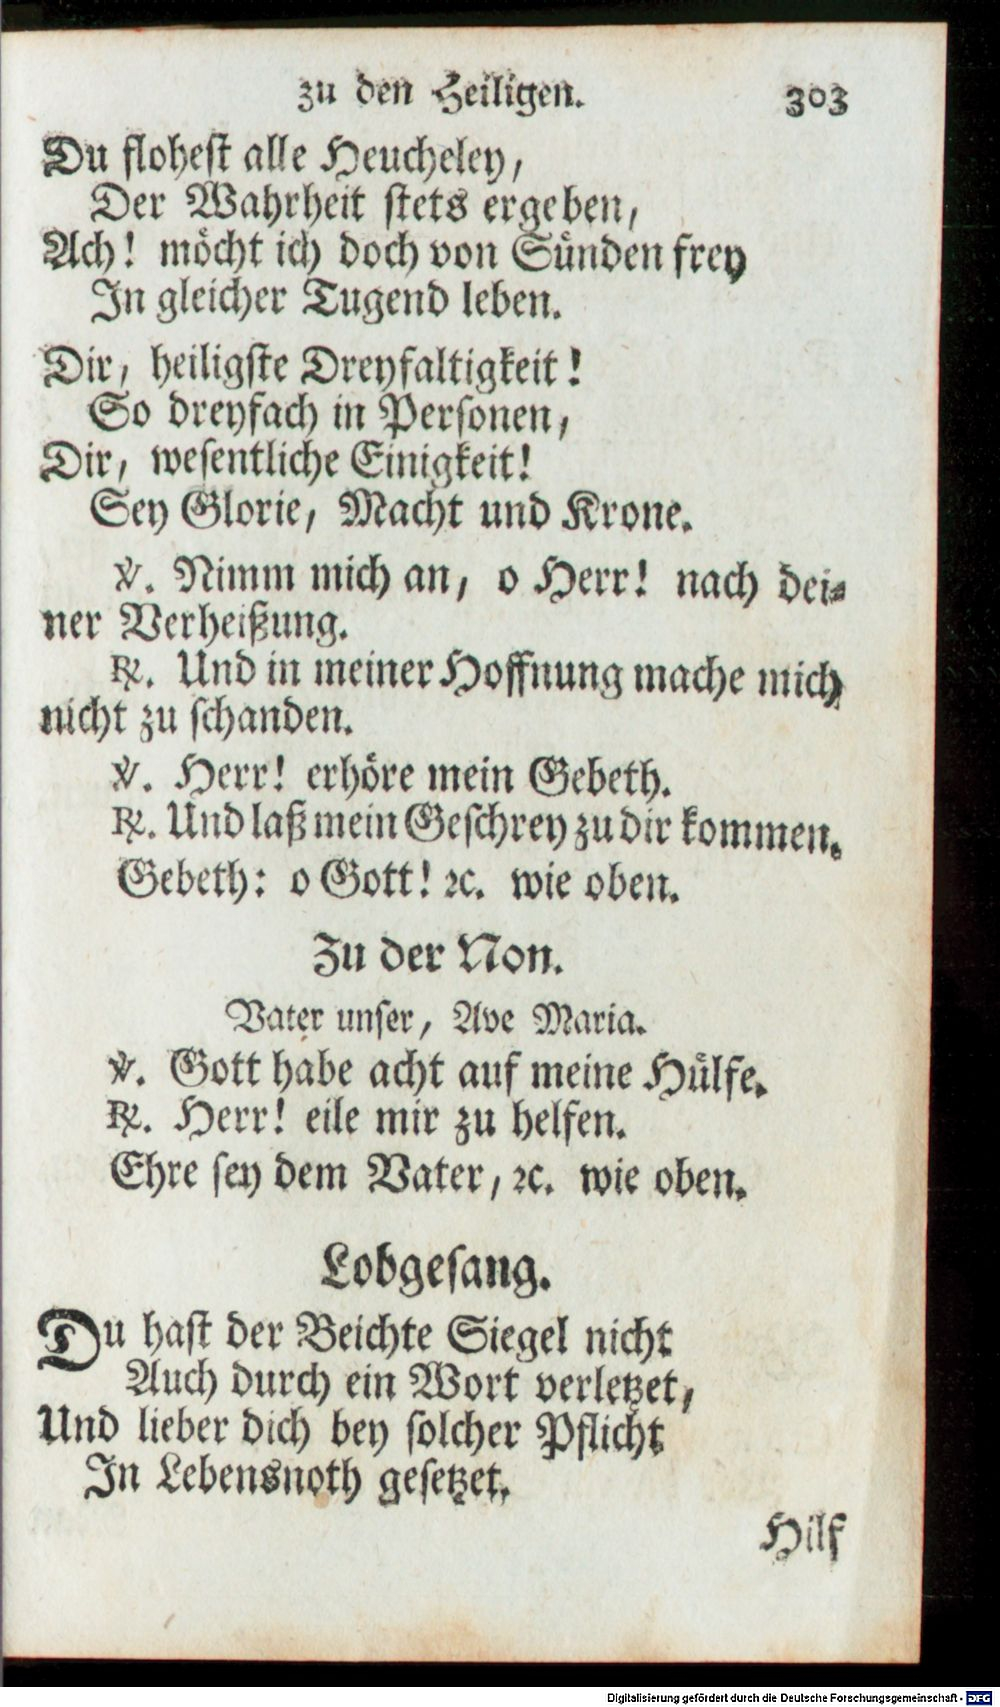 zu den Heiligen. 303
Du flohest alle Heucheley,
Der Wahrheit stets ergeben,
Ach! möcht ich doch von Sünden frey
In gleicher Tugend leben.
Dir, heiligste Dreyfaltigkeit!
So dreyfach in Personen,
Dir, wesentliche Einigkeit!
Sey Glorie, Macht und Krone.
℣. Nimm mich an, o Herr! nach dei-
ner Verheißung.
℟. Und in meiner Hoffnung mache mich
nicht zu schanden.
℣. Herr! erhöre mein Gebeth.
℟. Und laß mein Geschrey zu dir kommen.
Gebeth: o Gott! ꝛc. wie oben.
Zu der Non.
Vater unser, Ave Maria.
℣. Gott habe acht auf meine Hülfe.
℟. Herr! eile mir zu helfen.
Ehre sey dem Vater, ꝛc. wie oben.
Lobgesang.
Du hast der Beichte Siegel nicht
Auch durch ein Wort verletzet,
Und lieber dich bey solcher Pflicht
In Lebensnoth gesetzet.
Hilf
Digitalisierung gefördert durch die Deutsche Forschungsgemeinschaft - DFG